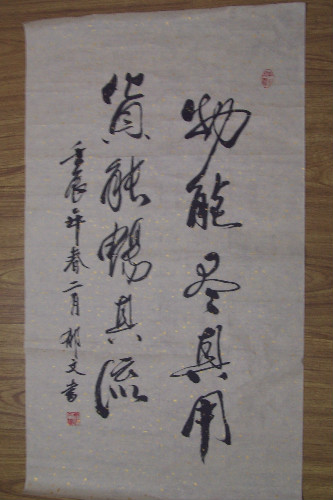 物能尽其用
货能畅其流
壬辰年春二月郁文书